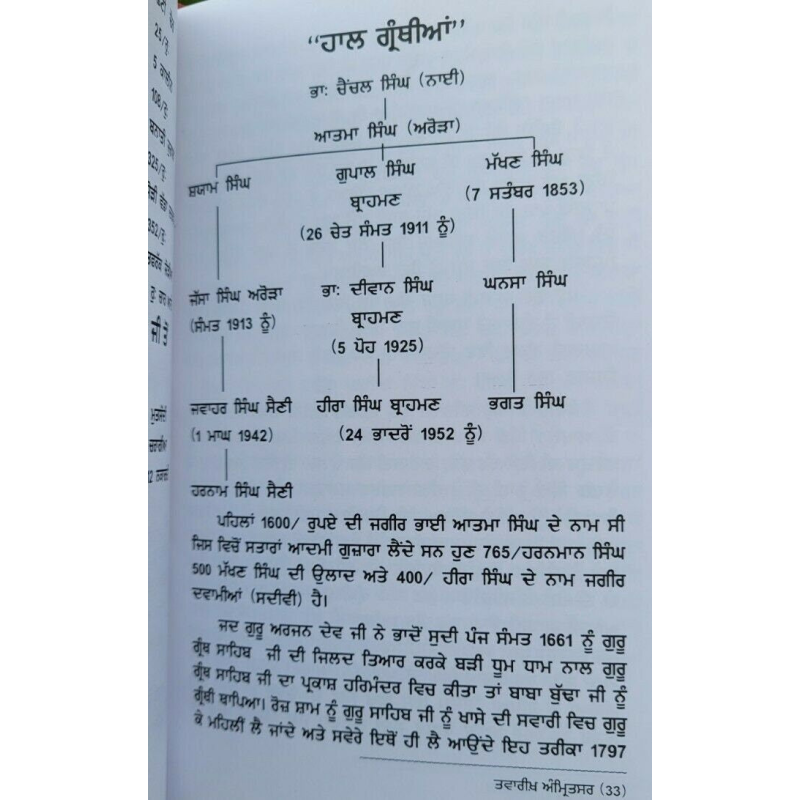 25/ਰੁ:
108/ਰੁ:
325/ਰੁ:
352/ਰੁ:
ਜੀ ਤੋਂ
"ਹਾਲ ਗ੍ਰੰਥੀਆਂ"
ਭਾ: ਚੈਂਚਲ ਸਿੰਘ (ਨਾਈ)
ਆਤਮਾ ਸਿੰਘ (ਅਰੋੜਾ)
ਸ਼ਯਾਮ ਸਿੰਘ ਗੁਪਾਲ ਸਿੰਘ ਮੱਖਣ ਸਿੰਘ
ਬ੍ਰਾਹਮਣ (7 ਸਤੰਬਰ 1853)
(26 ਚੇਤ ਸੰਮਤ 1911 ਨੂੰ)
ਜੱਸਾ ਸਿੰਘ ਅਰੋੜਾ ਭਾ: ਦੀਵਾਨ ਸਿੰਘ ਘਨਸਾ ਸਿੰਘ
(ਸੰਮਤ 1913 ਨੂੰ) ਬ੍ਰਾਹਮਣ
(5 ਪੋਹ 1925)
ਜਵਾਹਰ ਸਿੰਘ ਸੈਣੀ ਹੀਰਾ ਸਿੰਘ ਬ੍ਰਾਹਮਣ ਭਗਤ ਸਿੰਘ
(1 ਮਾਘ 1942) (24 ਭਾਦਰੋਂ 1952 ਨੂੰ)
ਹਰਨਾਮ ਸਿੰਘ ਸੈਣੀ
ਪਹਿਲਾਂ 1600/ ਰੁਪਏ ਦੀ ਜਗੀਰ ਭਾਈ ਆਤਮਾ ਸਿੰਘ ਦੇ ਨਾਮ ਸੀ
ਜਿਸ ਵਿਚੋਂ ਸਤਾਰਾਂ ਆਦਮੀ ਗੁਜ਼ਾਰਾ ਲੈਂਦੇ ਸਨ ਹੁਣ 765/ਹਰਨਮਾਨ ਸਿੰਘ
500 ਮੱਖਣ ਸਿੰਘ ਦੀ ਉਲਾਦ ਅਤੇ 400/ ਹੀਰਾ ਸਿੰਘ ਦੇ ਨਾਮ ਜਗੀਰ
ਦਵਾਮੀਆਂ (ਸਦੀਵੀ) ਹੈ।
ਜਦ ਗੁਰੂ ਅਰਜਨ ਦੇਵ ਜੀ ਨੇ ਭਾਦੋਂ ਸੁਦੀ ਪੰਜ ਸੰਮਤ 1661 ਨੂੰ ਗੁਰੂ
ਗ੍ਰੰਥ ਸਾਹਿਬ ਜੀ ਦੀ ਜਿਲਦ ਤਿਆਰ ਕਰਕੇ ਬੜੀ ਧੂਮ ਧਾਮ ਨਾਲ ਗੁਰੂ
ਗ੍ਰੰਥ ਸਾਹਿਬ ਜੀ ਦਾ ਪ੍ਰਕਾਸ਼ ਹਰਿਮੰਦਰ ਵਿਚ ਕੀਤਾ ਤਾਂ ਬਾਬਾ ਬੁੱਢਾ ਜੀ ਨੂੰ
ਗ੍ਰੰਥੀ ਥਾਪਿਆ। ਰੋਜ਼ ਸ਼ਾਮ ਨੂੰ ਗੁਰੂ ਸਾਹਿਬ ਜੀ ਨੂੰ ਖਾਸੇ ਦੀ ਸਵਾਰੀ ਵਿਚ ਗੁਰੂ
ਕੇ ਮਹਿਲੀਂ ਲੈ ਜਾਂਦੇ ਅਤੇ ਸਵੇਰੇ ਇਥੋਂ ਹੀ ਲੈ ਆਉਂਦੇ ਇਹ ਤਰੀਕਾ 1797
ਤਵਾਰੀਖ਼ ਅੰਮ੍ਰਿਤਸਰ (33)